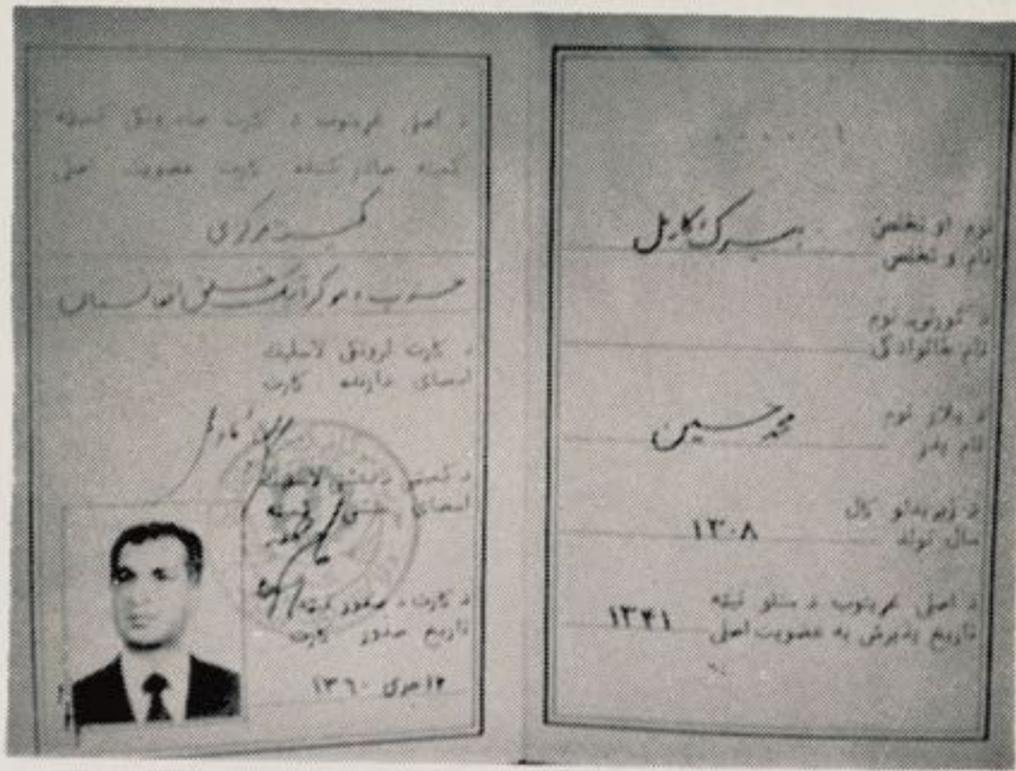 نوم او تخلص
نام و تخلص
ببرک کارمل
د کورنۍ نوم
نام خانوادگی
د پلار نوم
نام پدر
محمد حسین
د زېږېدلو کال
سال تولد
۱۳۰۸
د اصلی غړیتوب د منلو نېټه
تاریخ پذیرش به عضویت اصلی
۱۳۴۱
د اصلی غړیتوب د کارت صادروونکی کمیټه
کمیته صادر کننده کارت عضویت اصلی
کمیته مرکزی
حزب دموکراتیک خلق افغانستان
د کارت لرونکی لاسلیک
امضای دارنده کارت
د کمیټې د منشی لاسلیک
امضای منشی کمیته
د کارت د صدور نېټه
تاریخ صدور کارت
۱۲ جدی ۱۳۶۰